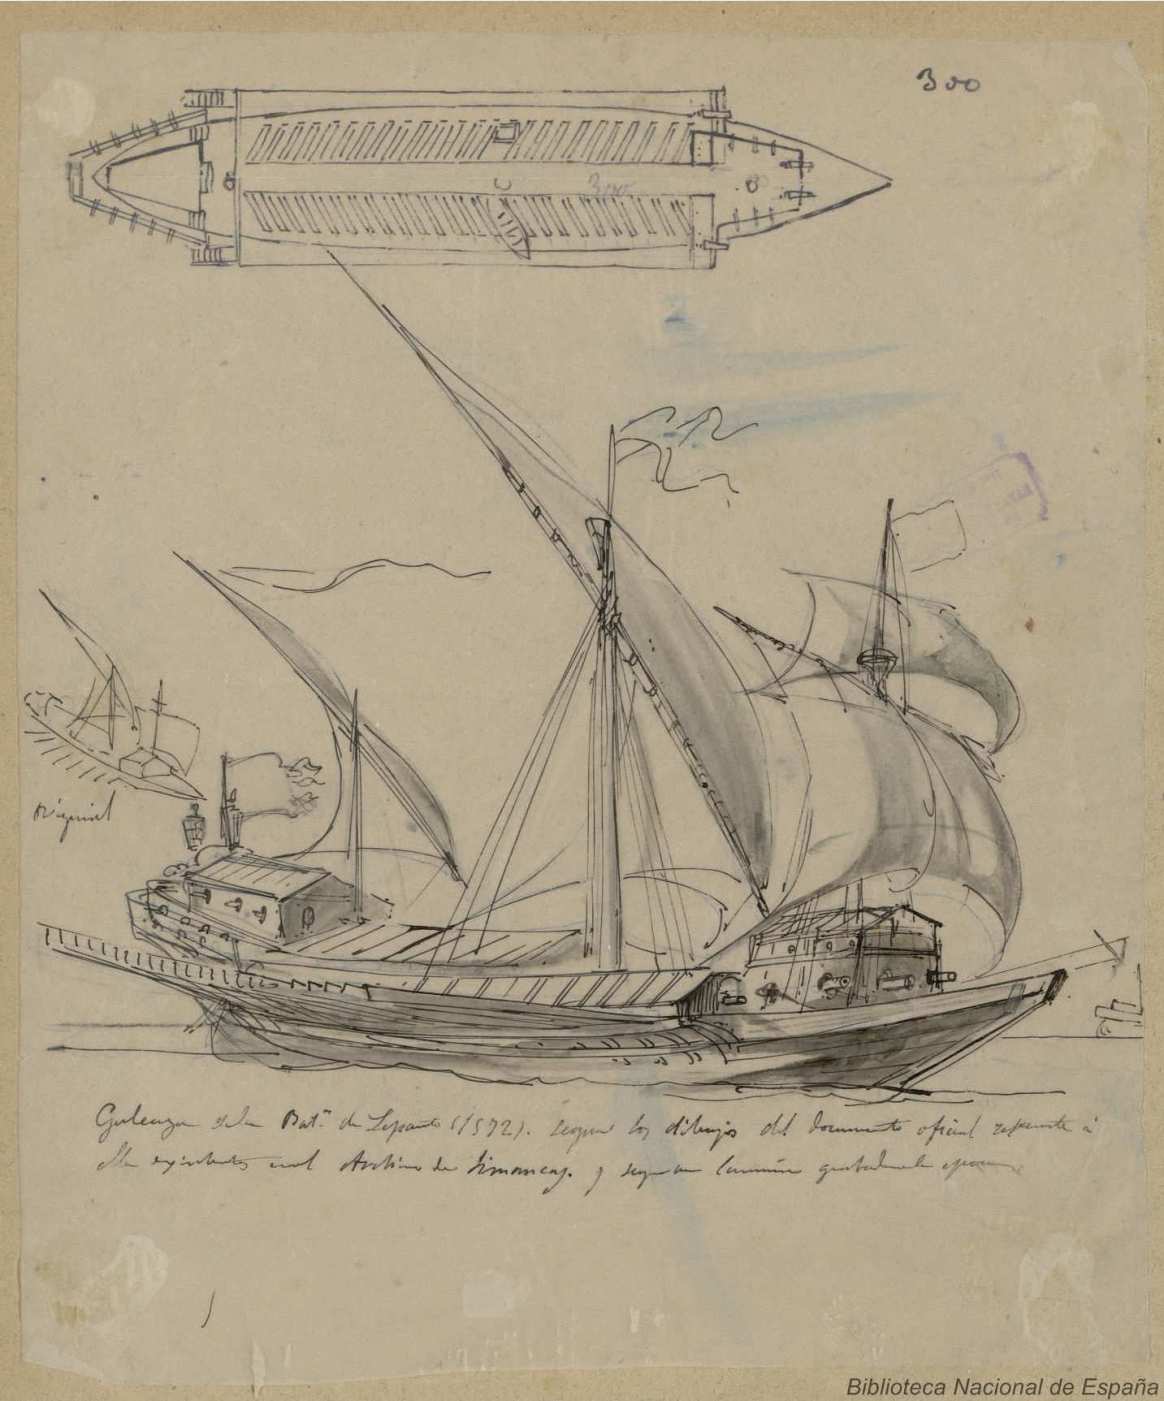 300
300
Galeaza de la Bat.ª de Lepanto (1572). segun los dibujos del documento oficial referente á
ella existentes en el Archivo de Simancas. y segun
Biblioteca Nacional de España